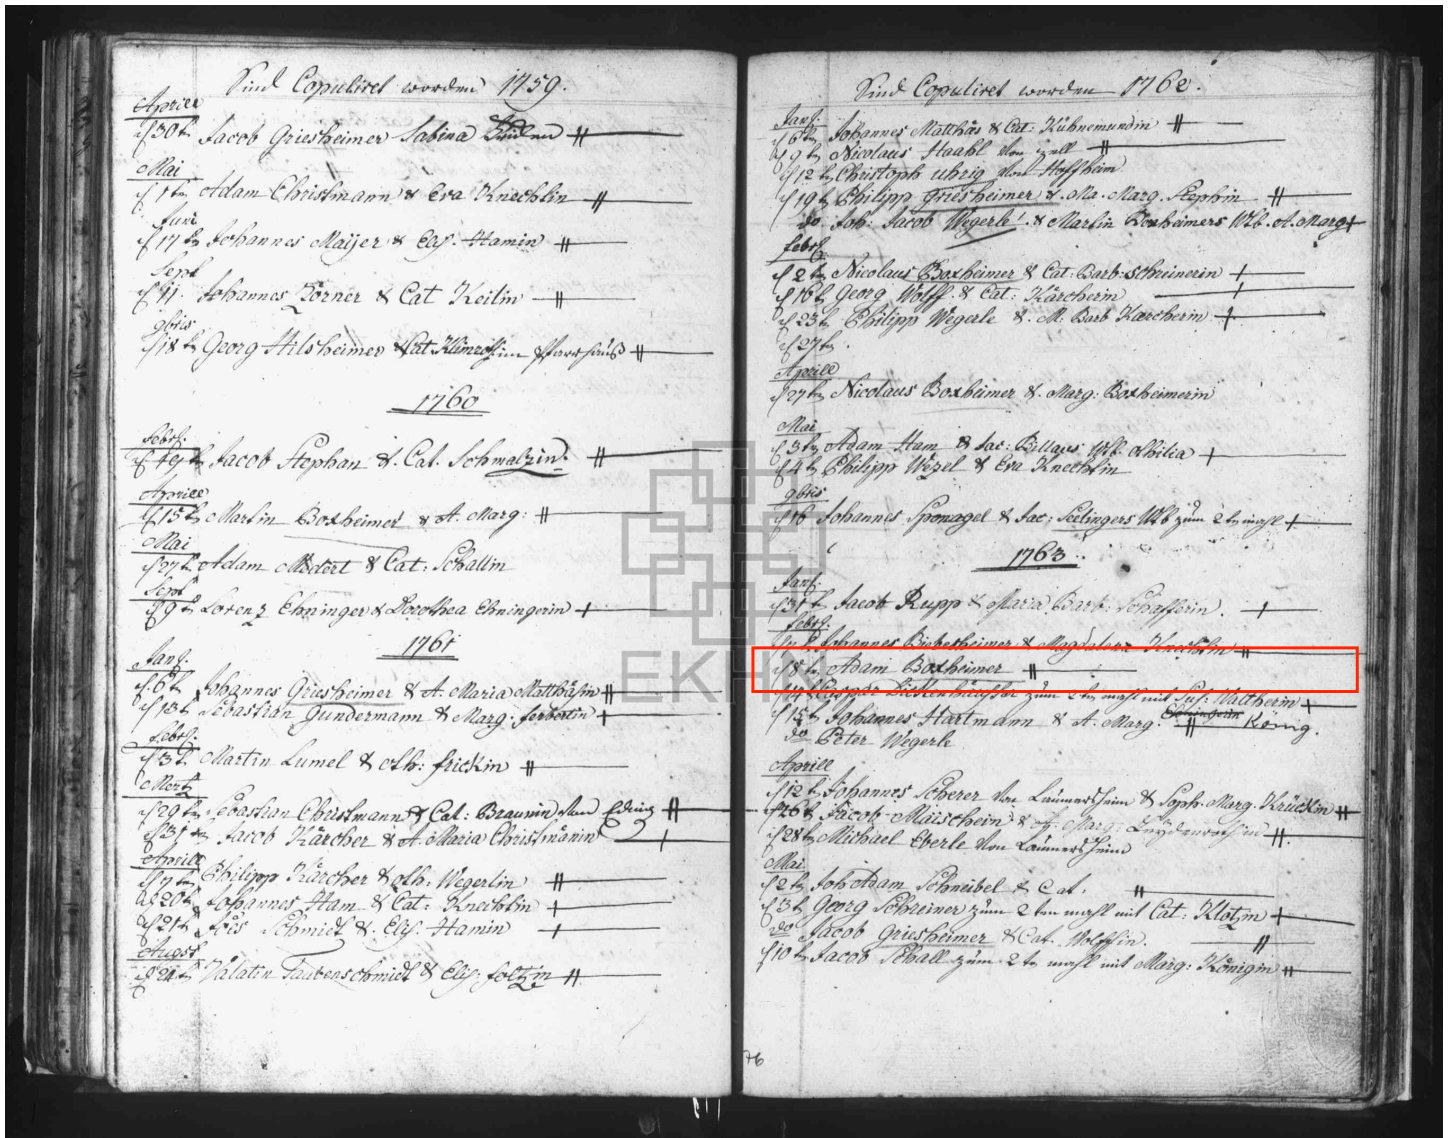 Sind Copuliret worden 1759.
Aprill
d 30t. Jacob Griesheimer Sabina
Mai
d 1t Adam Christmann & Eva Knechtin
Juni
d 17t Johannes Maijer & Elis. Hamin
Sept
d 11. Johannes Körner & Cat Keilin
9bris
d 18t Georg Hilsheimer & Cat im Pfarrhauß
1760
Febr:
Jacob Stephan & Cat. Schmalzin.
Aprill
d 15t Martin Boxheimer & A. Marg:
Mai
d 27t Adam & Cat: Schallin
Sept
d 9t Lorenz Ehninger & Dorothea Ehningerin
1761
Jan:
d. 6t Johannes Griesheimer & A. Maria Matthäsin
d 13t Sebastian Gundermann & Marg:
Febr:
d 3t. Martin Lumel & Oth: Frickin
Mertz
d 29t Sebastian Christmann & Cat: Braunin von
d 31t Jacob Kärcher & A. Maria Christmännin
Aprill
d 7t Philipp Kärcher & Oth: Wegerlin
d 20t Johannes Ham & Cat: Knechtin
d 21t Schmidt & Elis. Hamin
Augst
d 24t Valatin Taubenschmidt & Elis: Foltzin
Sind Copuliret worden 1762.
Jan:
d 6t Johannes Matthäs & Cat: Kühnemundin
d 9t Nicolaus Haahl von Zell
d 12t Christoph Uhrig von Hoffheim
d 19t Philipp Griesheimer & Ma. Marg. Stephin
do Joh: Jacob Wegerle & Martin Boxheimers Wtb. A. Marg
Febr:
d 2t Nicolaus Boxheimer & Cat: Barb: Schreinerin
d 16t Georg Wolff & Cat: Kärcherin
d 23t Philipp Wegerle & M. Barb Kärcherin
d 27t
Aprill
d 27t Nicolaus Boxheimer & Marg: Boxheimerin
Mai
d 3t Adam Ham & Jac: Wtb. Othilia
d 4t Philipp Wezel & Eva Knechtin
9bris
d 16 Johannes Sponagel & Jac: Seelingers Wtb zum 2t mahl
1763
Jan:
d 31t Jacob Rupp & Maria Barb: Schafferin
Febr:
Johannes & Magdalena Knechtin
d 8t Adam Boxheimer
d 14t Caspar zum 2t mahl mit Sus: Waltherin
d 15t Johannes Hartmann & A. Marg. König.
do Peter Wegerle
Aprill
d 12t Johannes Scherer von Laumersheim & Soph. Marg. Krückin
d 26t Jacob & A. Marg:
d 28t Michael Eberle von Laumersheim
Mai
d 2t Joh Adam Schneibel & Cat.
d 3t Georg Schreiner zum 2ten mahl mit Cat: Klotzin
do Jacob Griesheimer & Cat. Wolffin.
d 10t Jacob Schall zum 2t mahl mit Marg: Königin
76
EKHN